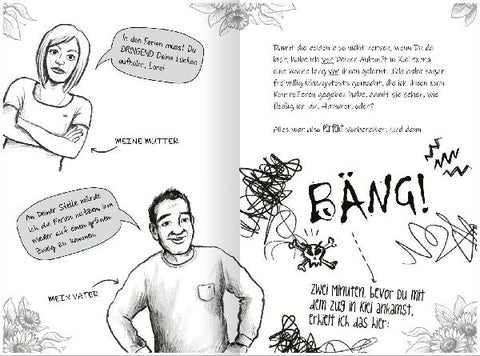 In den Ferien musst Du
DRINGEND Deine Lücken
aufholen, Lara!
MEINE MUTTER
An Deiner Stelle würde
ich die Ferien nutzen, um
wieder auf einen grünen
Zweig zu kommen.
MEIN VATER
Damit die beiden also nicht nerven, wenn Du da
bist, habe ich vor Deiner Ankunft in Kiel extra
eine Woche lang vor ihnen gelernt. Ich habe sogar
freiwillig Übungstests gemacht, die ich ihnen zum
Kontrollieren gegeben habe, damit sie sehen, wie
fleißig ich bin. Hammer, oder?
Alles war also perfekt vorbereitet. Und dann
BÄNG!
Zwei Minuten, bevor Du mit
dem Zug in Kiel ankamst,
erhielt ich das hier: